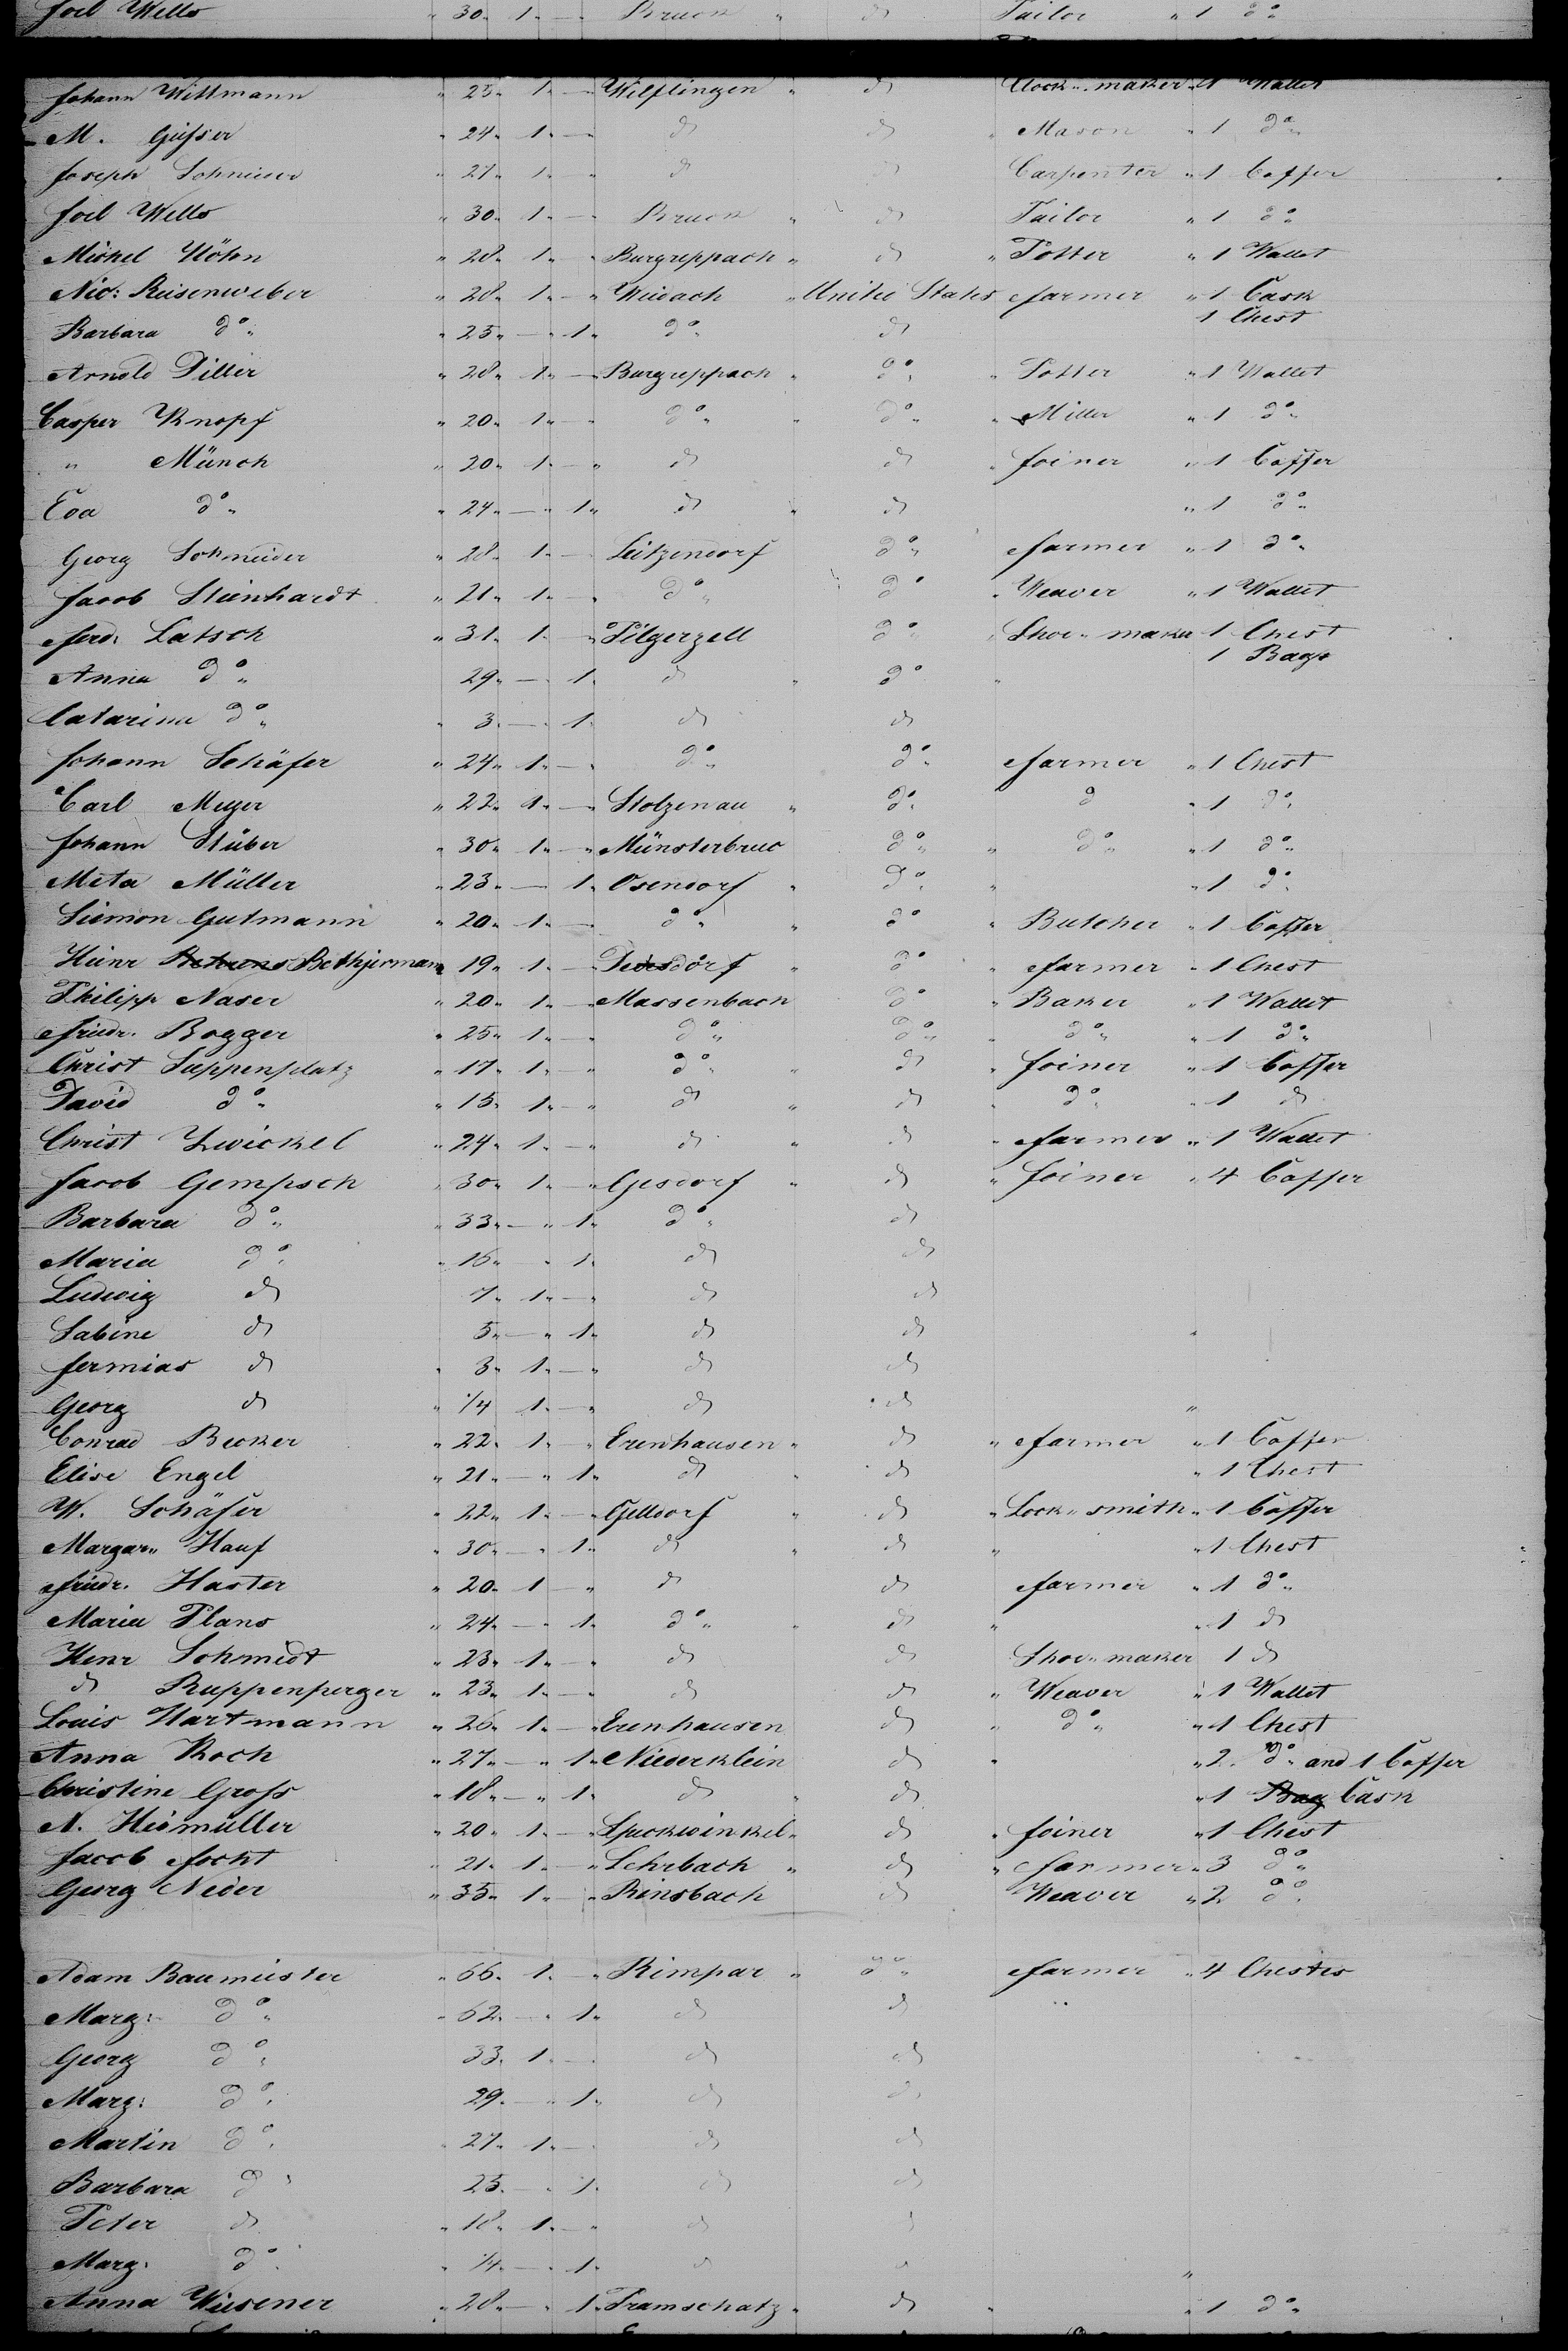 Joel Wells " 30 " 1 " — Bruck " do Tailor " 1 do "
Johann Wittmann " 25 " 1 " — " Wilflingen " do Clock " maker " 1 Wallet
M. Gusser " 24 " 1 " — " do do " Mason " 1 do "
Joseph Schneider " 27 " 1 " — " do do Carpenter " 1 Coffer
Joel Wells " 30 " 1 " — " Bruck " do Tailor " 1 do "
Michel Höhn " 28 " 1 " — " Burgreppach " do " Potter " 1 Wallet
Nic: Reisenweber " 28 " 1 " — " Weidach " United States Farmer " 1 Cask
1 Chest
Barbara do " " 25 " — " 1 " do " do
Arnold Diller " 28 " 1 " — " Burgreppach " do " " Potter " 1 Wallet
Casper Knopf " 20 " 1 " — " do " " do " " Miller " 1 do "
" Münch " 20 " 1 " — " do do " Joiner " 1 Coffer
Eva do " " 24 " — " 1 " do " do " 1 do "
Georg Schneider " 28 " 1 " — Leitzendorf do " Farmer " 1 do "
Jacob Steinhardt " 21 " 1 " — " do " do " Weaver " 1 Wallet
Ferd. Latsch " 31 " 1 " — " Pilgerzell do " Shoe " maker 1 Chest
1 Bag
Anna do " 29 " — 1 " do " do "
Catarina do " " 3 " — " 1 " do do
Johann Schäfer " 24 " 1 " — " do " do " Farmer " 1 Chest
Carl Meyer " 22 " 1 " — " Stolzenau " do " " do " 1 do "
Johann Stüber " 30 " 1 " — " Münsterbruc do " " do " " 1 do "
Meta Müller " 23 " — 1 " Osendorf " do " " " 1 do "
Siemon Gutmann " 20 " 1 " — do " " do " Butcher " 1 Coffer
Heinr Behrens Bethjermann 19 " 1 " — Dedesdorf " do " Farmer " 1 Chest
Philipp Naser " 20 " 1 " — " Massenbach do " " Baker " 1 Wallet
Friedr. Bogger " 25 " 1 " — " do " do " " do " " 1 do "
Christ Suppenplatz " 17 " 1 " — " do " " do " Joiner " 1 Coffer
David do " " 15 " 1 " — " do " do " do " " 1 do
Christ Zwickel " 24 " 1 " — " do " do " Farmer " 1 Wallet
Jacob Gempsch " 30 " 1 " — " Gesdorf " do " Joiner " 4 Coffer
Barbara do " " 33 " — " 1 " do " do
Maria do " " 16 " " 1 " do do
Ludwig do 7 " 1 " — " do do
Sabine do 5 " — " 1 " do do "
Jermias do " 3 " 1 " — " do do
Georg do " 1/4 1 " — " do do "
Conrad Becker " 22 " 1 " — " Erenhausen " do " Farmer " 1 Coffer
Elise Engel " 21 " — " 1 " do " do " 1 Chest
W. Schäfer " 22 " 1 " — " Gelldorf " do " Lock " smith " 1 Coffer
Margar " Hauf " 30 " — " 1 " do " do " " 1 Chest
Friedr. Haster " 20 " 1 — " do do Farmer " 1 do "
Maria Plans " 24 " — " 1 " do " " do " " 1 do
Henr Schmidt " 23 " 1 " — " do do Shoe " maker 1 do
do Ruppenperger " 23 " 1 " — " do do " Weaver " 1 Wallet
Louis Hartmann " 26 " 1 " — " Erenhausen do " do " " 1 Chest
Anna Koch " 27 " — " 1 " Niederklein do " " 2 " do " and 1 Coffer
Christine Gross " 18 " — " 1 " do " do " 1 Bag Cask
A. Heismüller " 20 " 1 " — " Speckwinkel " do " Joiner " 1 Chest
Jacob Jocht " 21 " 1 " — " Lehrbach " do " Farmer " 3 do "
Georg Neder " 35 " 1 " — " Rinsbach do Weaver " 2 do "
Adam Baumeister " 66 " 1 " — " Rimpar " do " Farmer " 4 Chestes
Marg: do " " 62 " — " 1 " do do "
Georg do " 33 " 1 " — " do do
Marg: do " 29 " — " 1 " do do
Martin do " " 27 " 1 " — " do do
Barbara do " 25 " — " 1 " do do
Peter do " 18 " 1 " — " do do
Marg: do " " 14 " — " 1 " do do "
Anna Wiesener " 28 " — " 1 " Pramschatz " do " " 1 do "